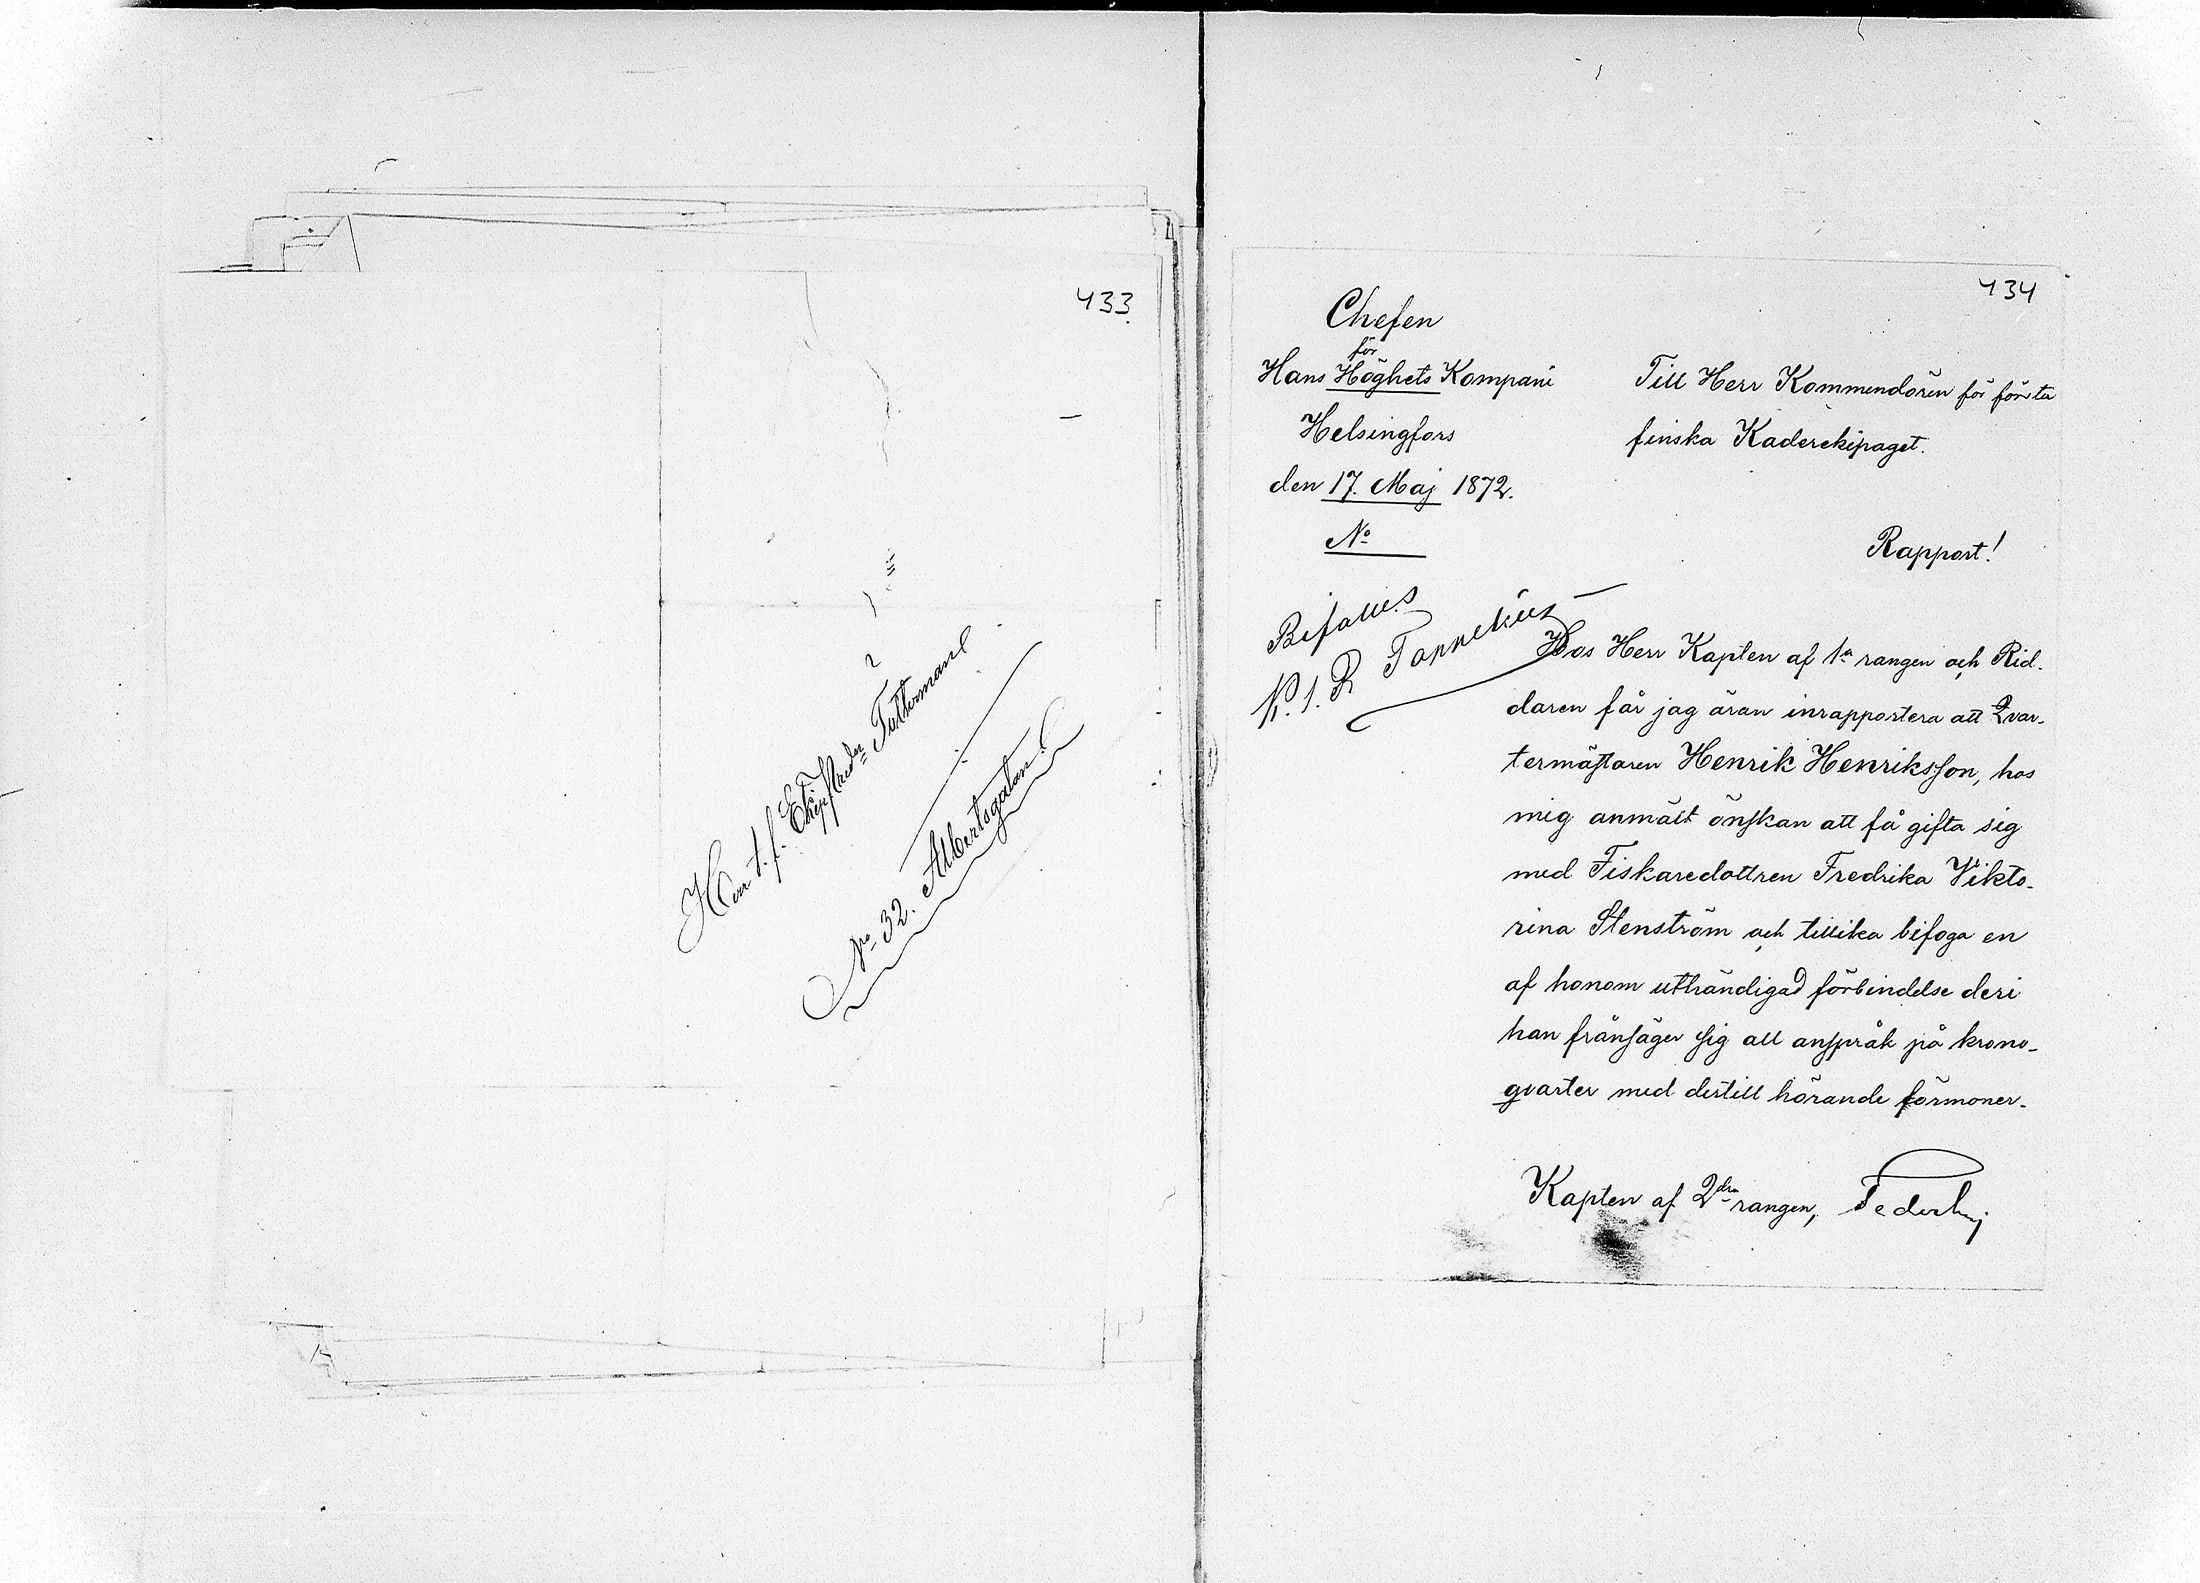 433
Herr t. f. Ekip Tukkorman
No 32. Albertsgatan.
434
Chefen
för
Hans Höghets Kompani
Helsingfors
den 17. Maj 1872.
No
Till Herr Kommendören för första
finska Kaderekipaget.
Rapport!
Bifalles
K. 1. R
Hos Herr Kapten af 1a rangen och Rid-
daren får jag äran inrapportera att Qvar-
termästaren Henrik Henriksson, hos
mig anmält önskan att få gifta sig
med Fiskaredottren Fredrika Vikto-
rina Stenström och tillika bifoga en
af honom uthändigad förbindelse deri
han frånsäger sig all anspråk på krono-
qvarter med dertill hörande förmoner.
Kapten af 2dra rangen, Federley